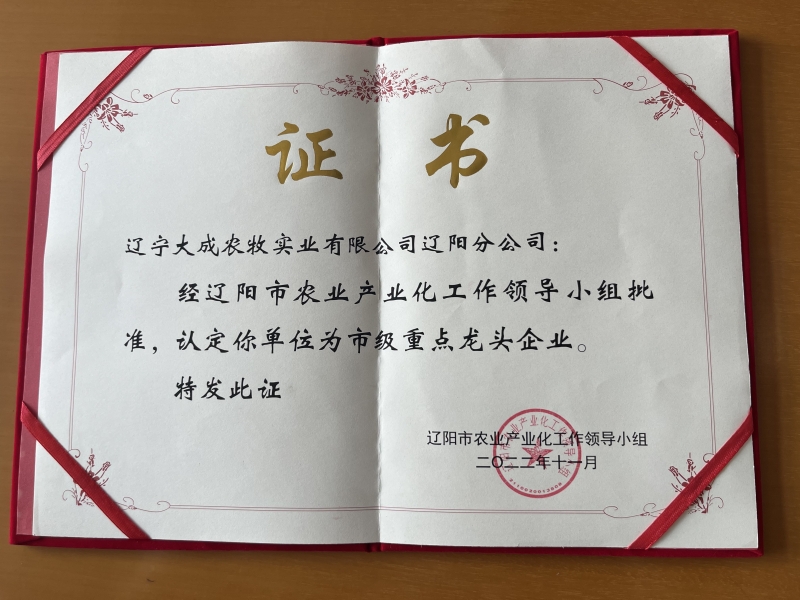 证书
辽宁大成农牧实业有限公司辽阳分公司：
经辽阳市农业产业化工作领导小组批
准，认定你单位为市级重点龙头企业。
特发此证
辽阳市农业产业化工作领导小组
二〇二二年十一月
辽阳市农业产业化工作领导小组